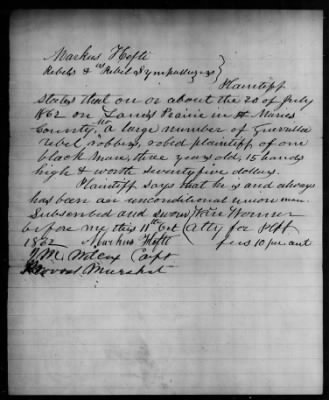 Markus Hofti
vs
Rebels & Rebel Sympathizers
Plaintiff
states that on or about the 20 of July
1862 on Lanes Prairie in Maries
County, a large number of Guerrilla
rebel robbers, robed plaintiff of one
black mare, three years old, 15 hands
high & worth seventy five dollars.
Plaintiff says that he is and always
has been an unconditional union man.
Subscribed and sworn
before me this 11th Oct Atty for Plff
1862 Markus Hofti fees 10 per cent
J. M. Wilcox Capt
Provost Marshal